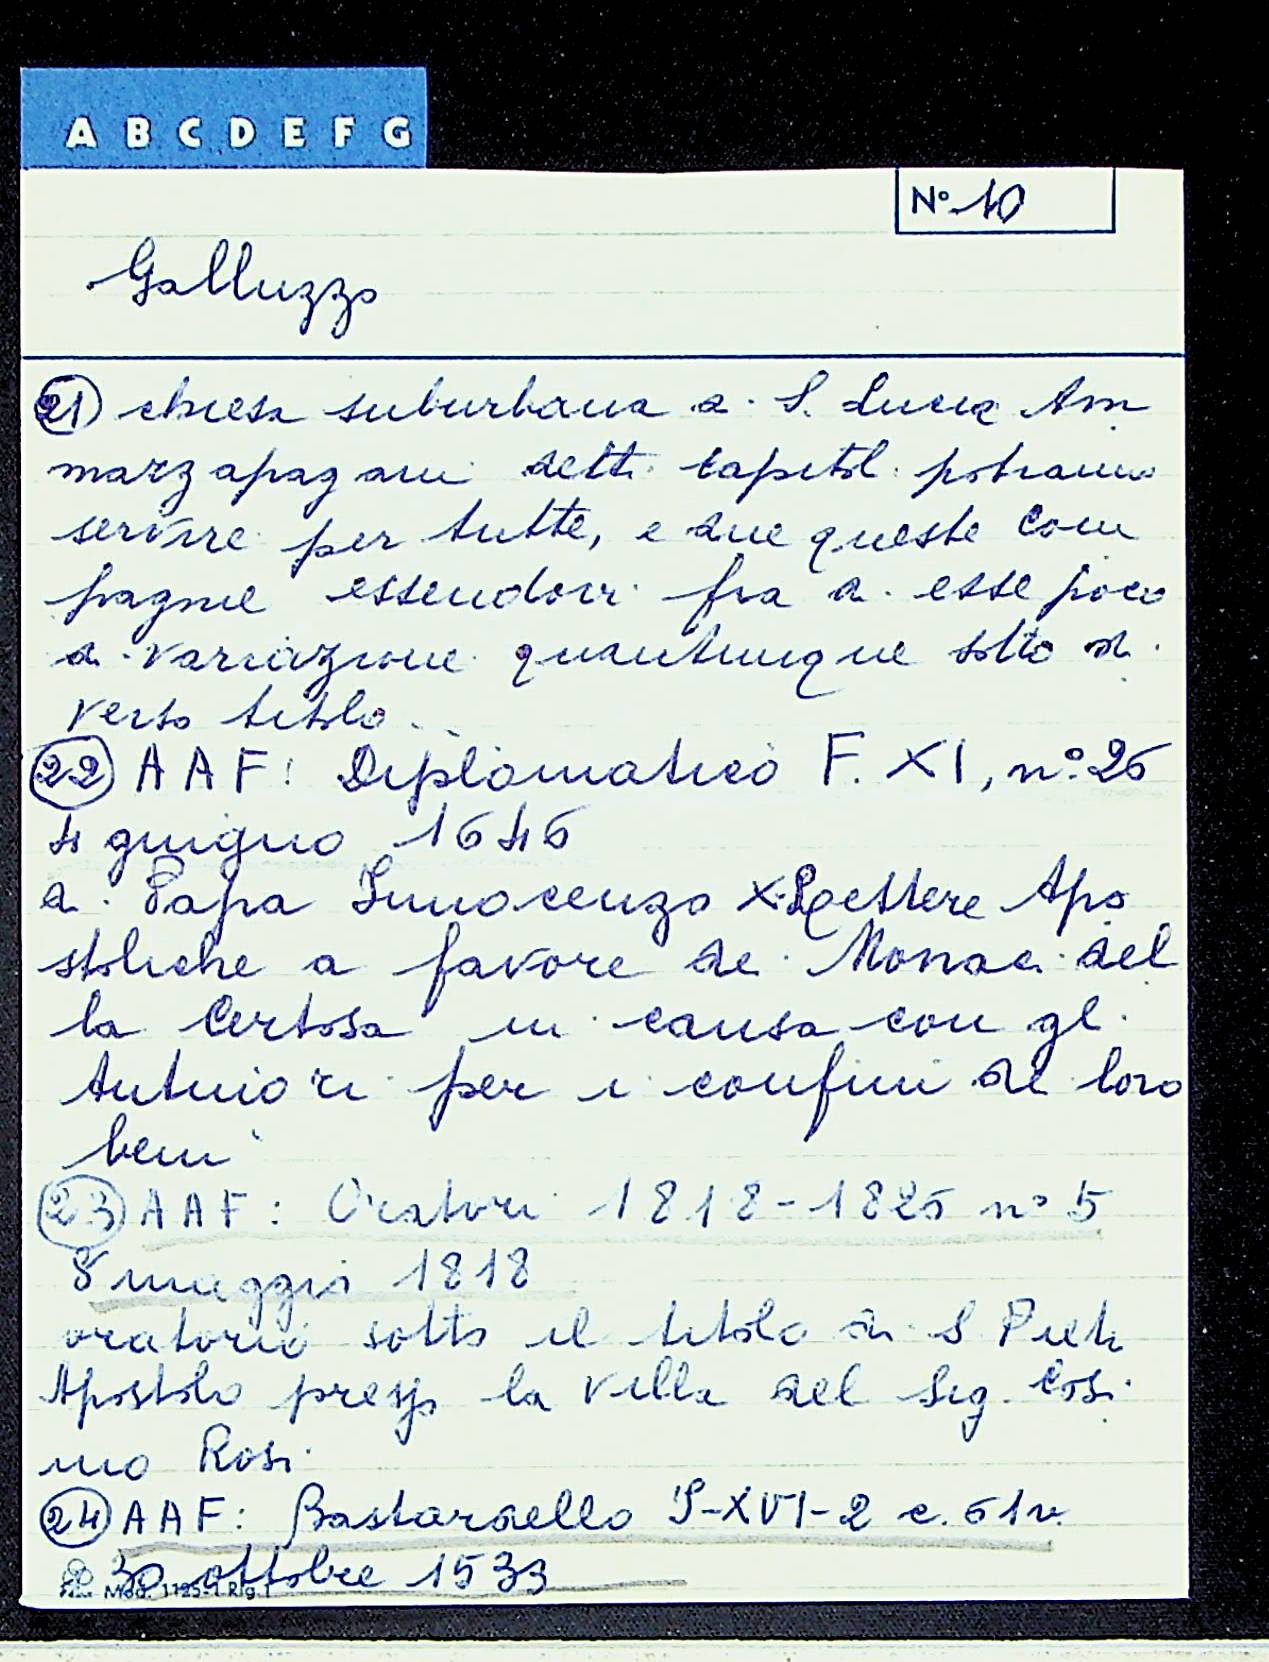 A B C D E F G
N° 10
Galluzzo
21 chiesa suburbana di S. Lucia Am
mazzapagani detti capitoli potranno
servire per tutte, e due queste Com
pagnie essendovi fra di esse poca
di variazione quantunque sotto di
verso titolo.
22 AAF: Diplomatico F. XI, n° 26
4 giugno 1646
di Papa Innocenzo X Lettere Apo
stoliche a favore dei Monaci del
la Certosa in causa con gl
Antinori per i confini di loro
beni
23 AAF: Oratori 1818-1825 n° 5
8 maggio 1818
oratorio sotto il titolo di S Pietr
Apostolo presso la villa del Sig. Cosi
mo Rosi
24 AAF: Bastardello S-XVI-2 c. 61v.
30 ottobre 1533
Mod. 1125-1 Rig.